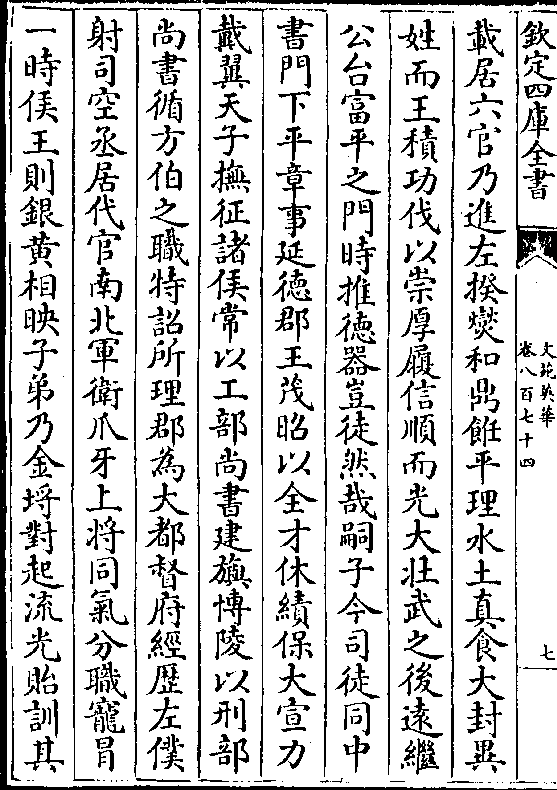 欽定四庫全書
文苑英華
卷八百七十四
七
載居六官乃進左揆爕和鼎飪平理水土真食大封異
姓而王積功伐以崇厚履信順而光大壯武之後逺繼
公台富平之門時推徳器豈徒然哉嗣子今司徒同中
書門下平章事延徳郡王茂昭以全才休績保大宣力
戴翼天子撫征諸侯常以工部尚書建旟愽陵以刑部
尚書循方伯之職特詔所理郡為大都督府經歴左僕
射司空丞居代官南北軍衛爪牙上将同氣分職寵冒
一時侯王則銀黄相映子弟乃金埒對起流光貽訓其